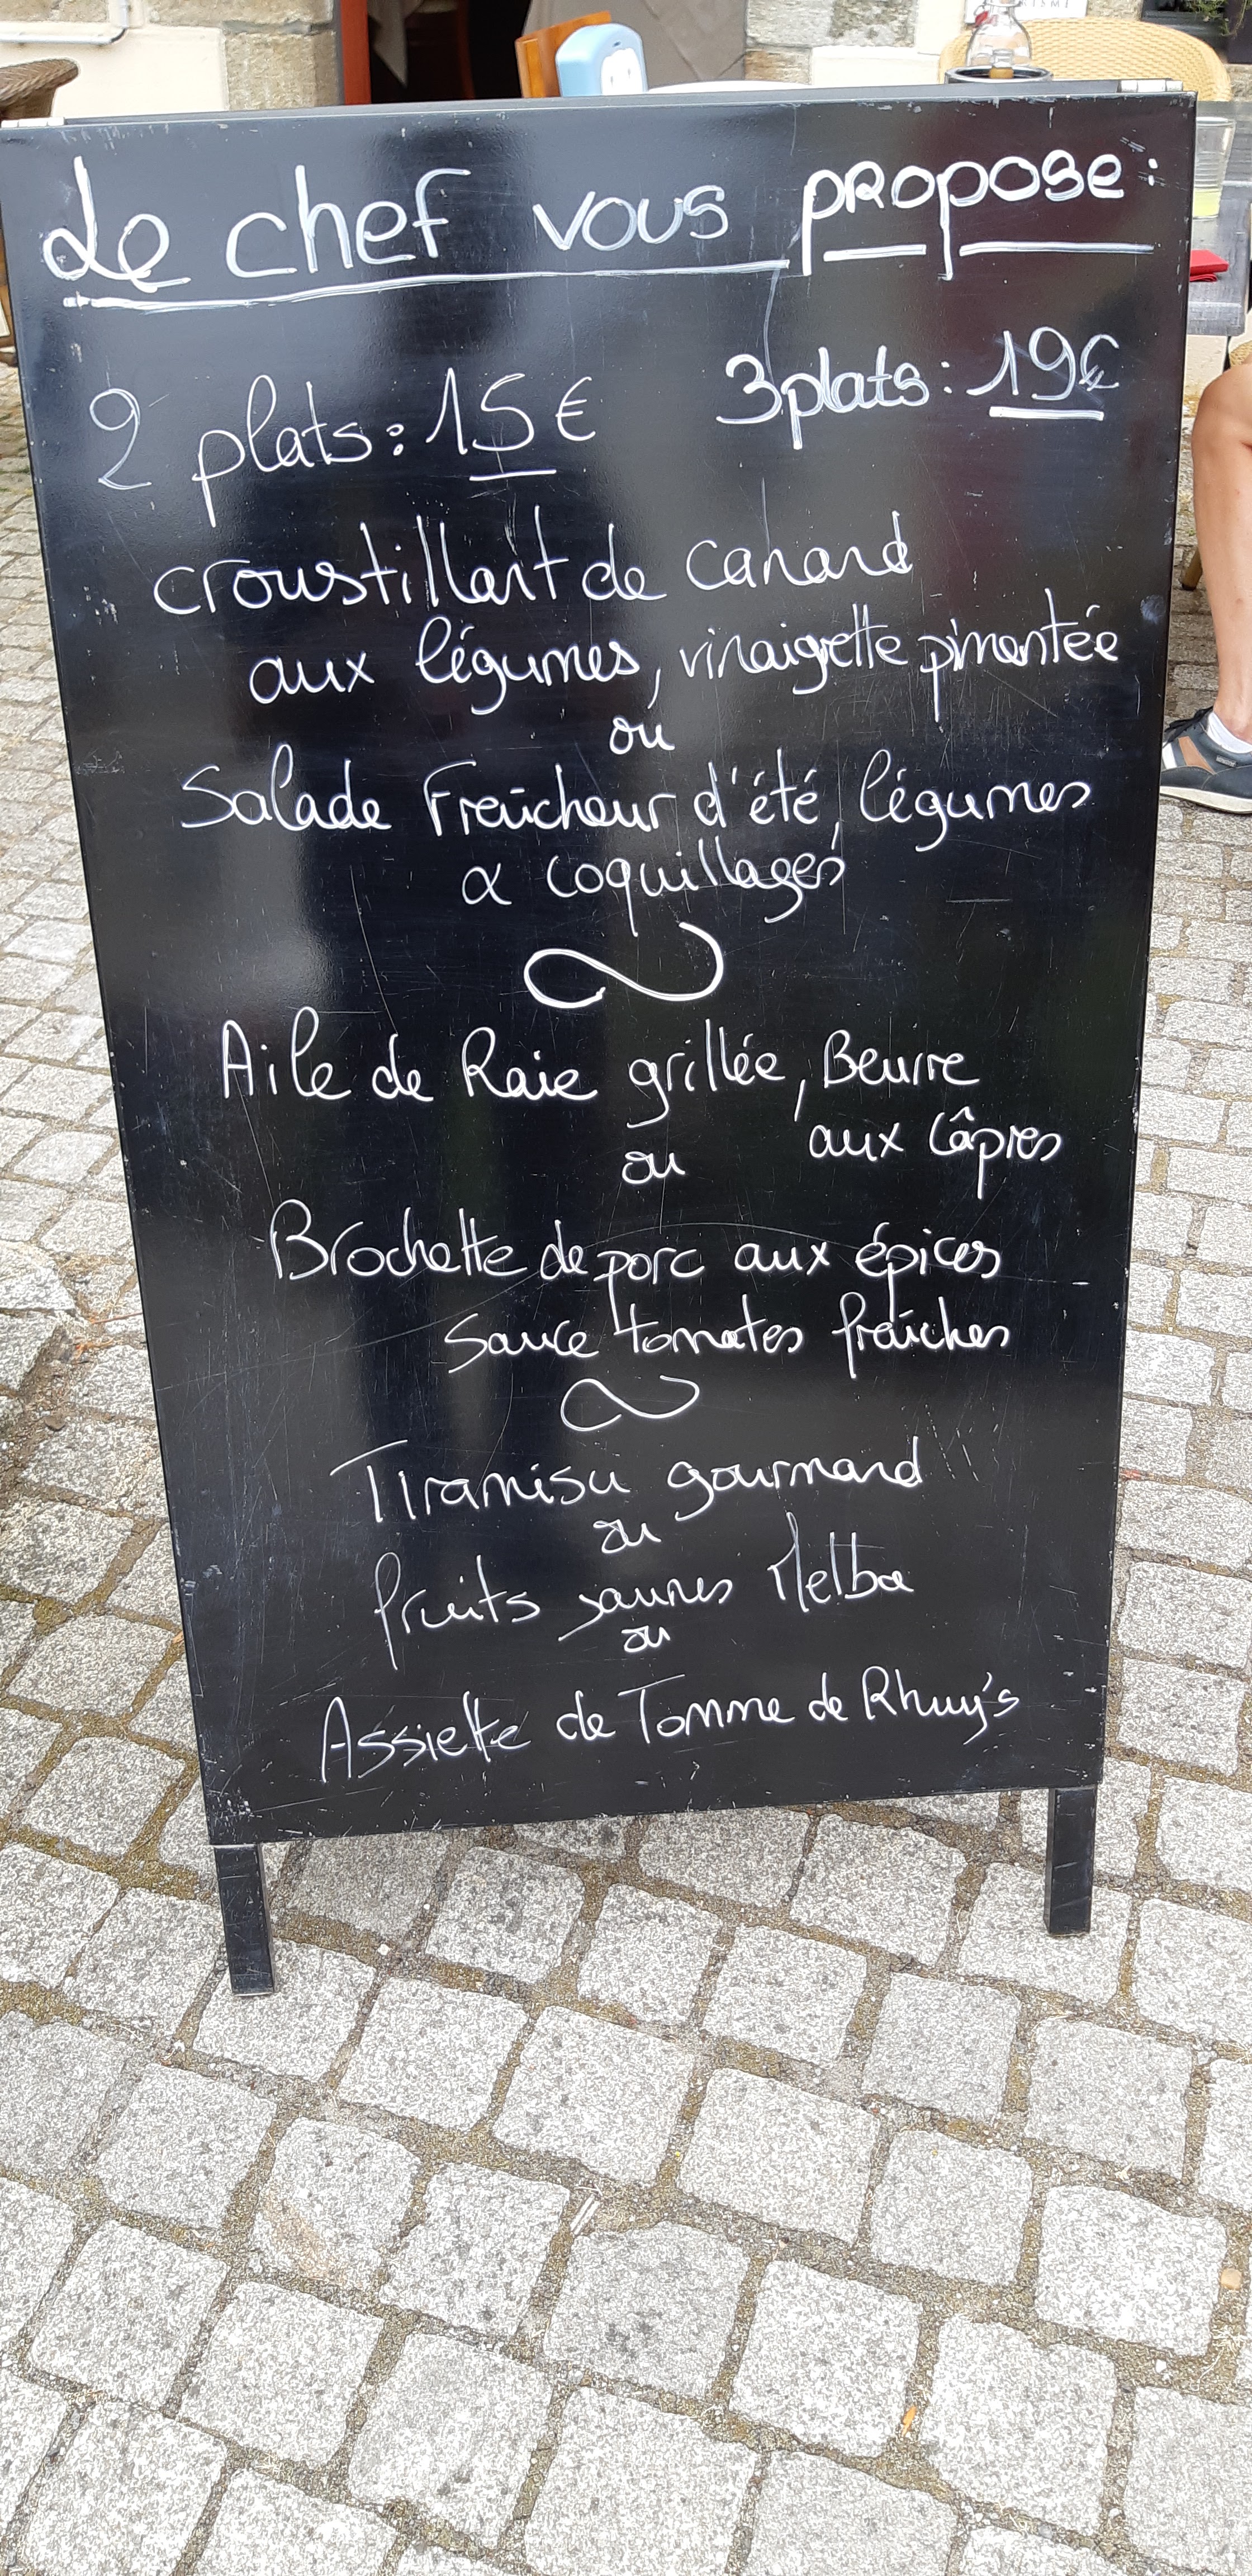 Le chef vous propose:
2 plats: 15€ 3 plats: 19€
croustillant de canard
aux légumes, vinaigrette pimentée
ou
Salade Fraîcheur d'été, légumes
& coquillages
Aile de Raie grillée, Beurre
aux câpres
ou
Brochette de porc aux épices
Sauce tomates fraîches
Tiramisu gourmand
ou
fruits jaunes Melba
ou
Assiette de Tomme de Rhuys